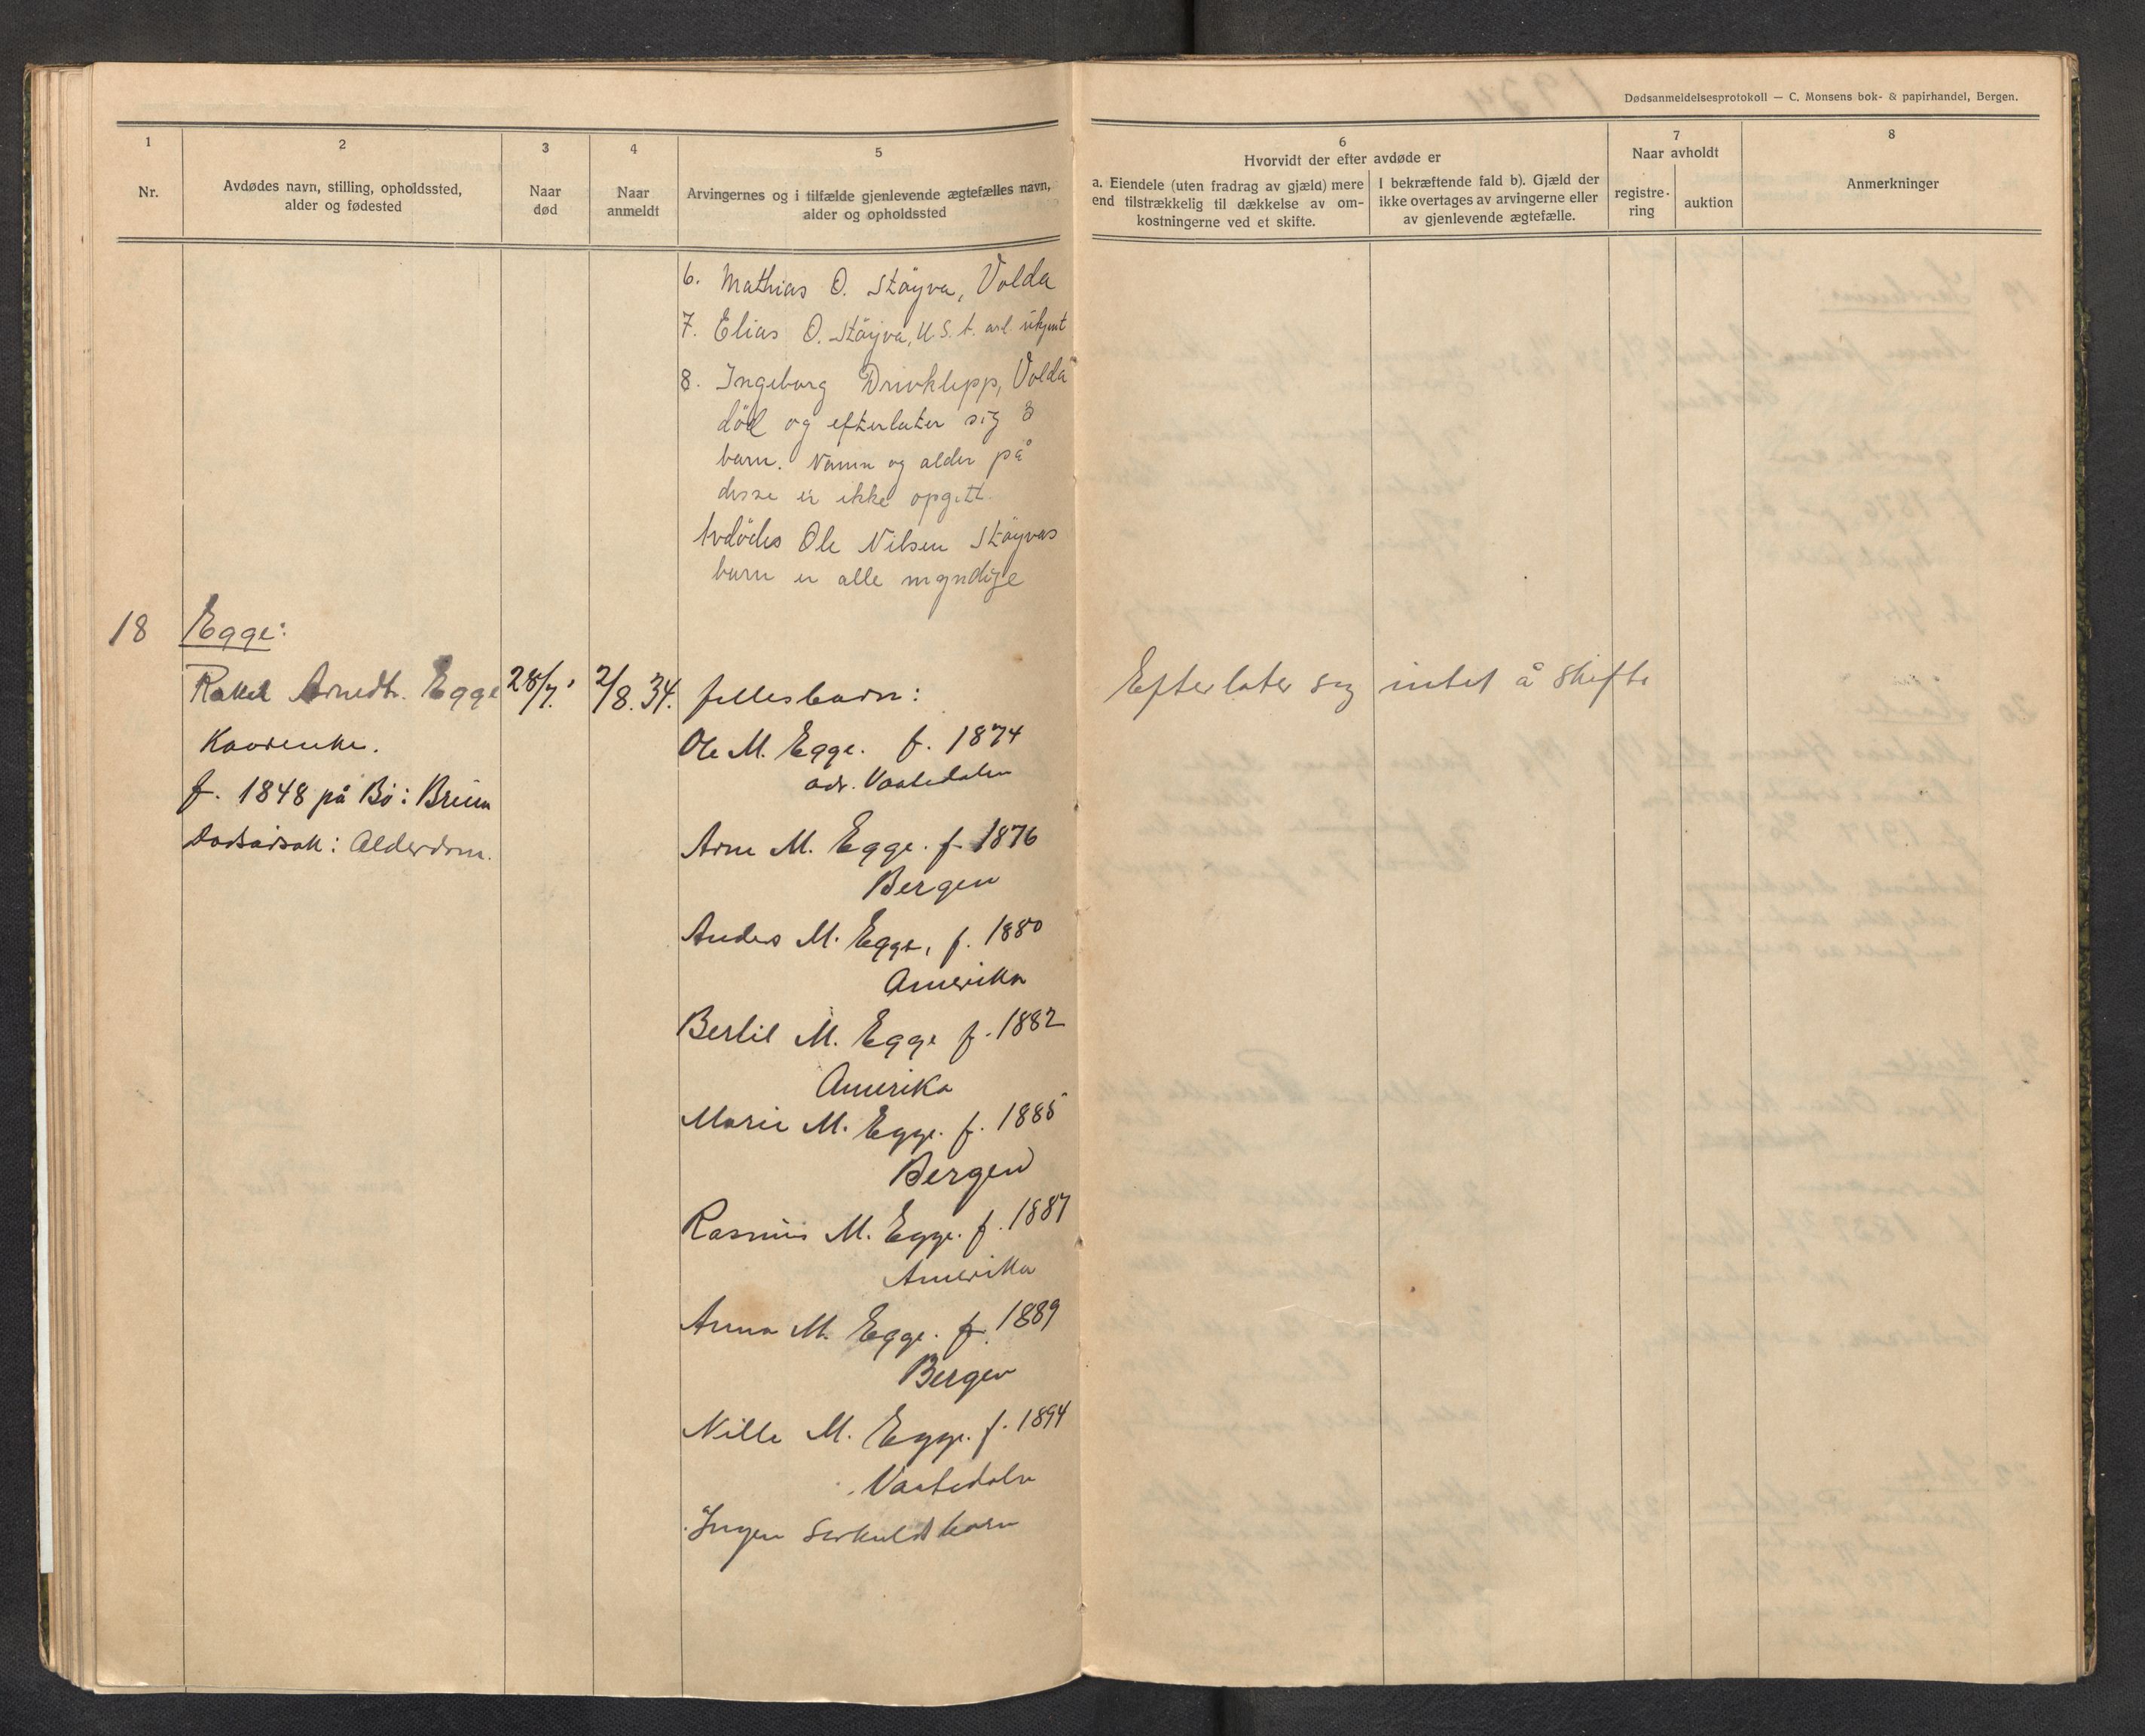 Dødsanmeldelsesprotokoll — C. Monsens bok- & papirhandel, Bergen.
1
Nr.
2
Avdødes navn, stilling, opholdssted,
alder og fødested
3
Naar
død
4
Naar
anmeldt
5
Arvingernes og i tilfælde gjenlevende ægtefælles navn,
alder og opholdssted
6
Hvorvidt der efter avdøde er
a. Eiendele (uten fradrag av gjæld) mere
end tilstrækkelig til dækkelse av om-
kostningerne ved et skifte.
I bekræftende fald b). Gjæld der
ikke overtages av arvingerne eller
av gjenlevende ægtefælle.
7
Naar avholdt
registre-
ring
auktion
8
Anmerkninger
6. Mathias O. Støyva, Volda
7. Elias O. Støyva, U.S.A. adr. ukjent
8. Ingeborg Drivklepp, Volda
död og efterlater sig 3
barn. Namn og alder på
disse er ikke opgitt.
Avdödes Ole Nilsen Støyvas
barn er alle myndige
18
Egge:
Rakel Arnedtr. Egge
Kaarenke.
f. 1848 på Bø i Breim
Dødsårsak: Alderdom.
28/7.
2/8.34.
fellesbarn:
Ole M. Egge. f. 1874
adr. Vaatedalen
Arne M. Egge. f. 1876
Bergen
Anders M. Egge, f. 1880
Amerika
Bertil M. Egge f. 1882
Amerika
Marie M. Egge. f. 1885
Bergen
Rasmus M. Egge. f. 1887
Amerika
Anna M. Egge. f. 1889
Bergen
Nille M. Egge. f. 1894
Vaatedalen
Ingen Serkuldtbarn
Efterlater sig intet å skifte